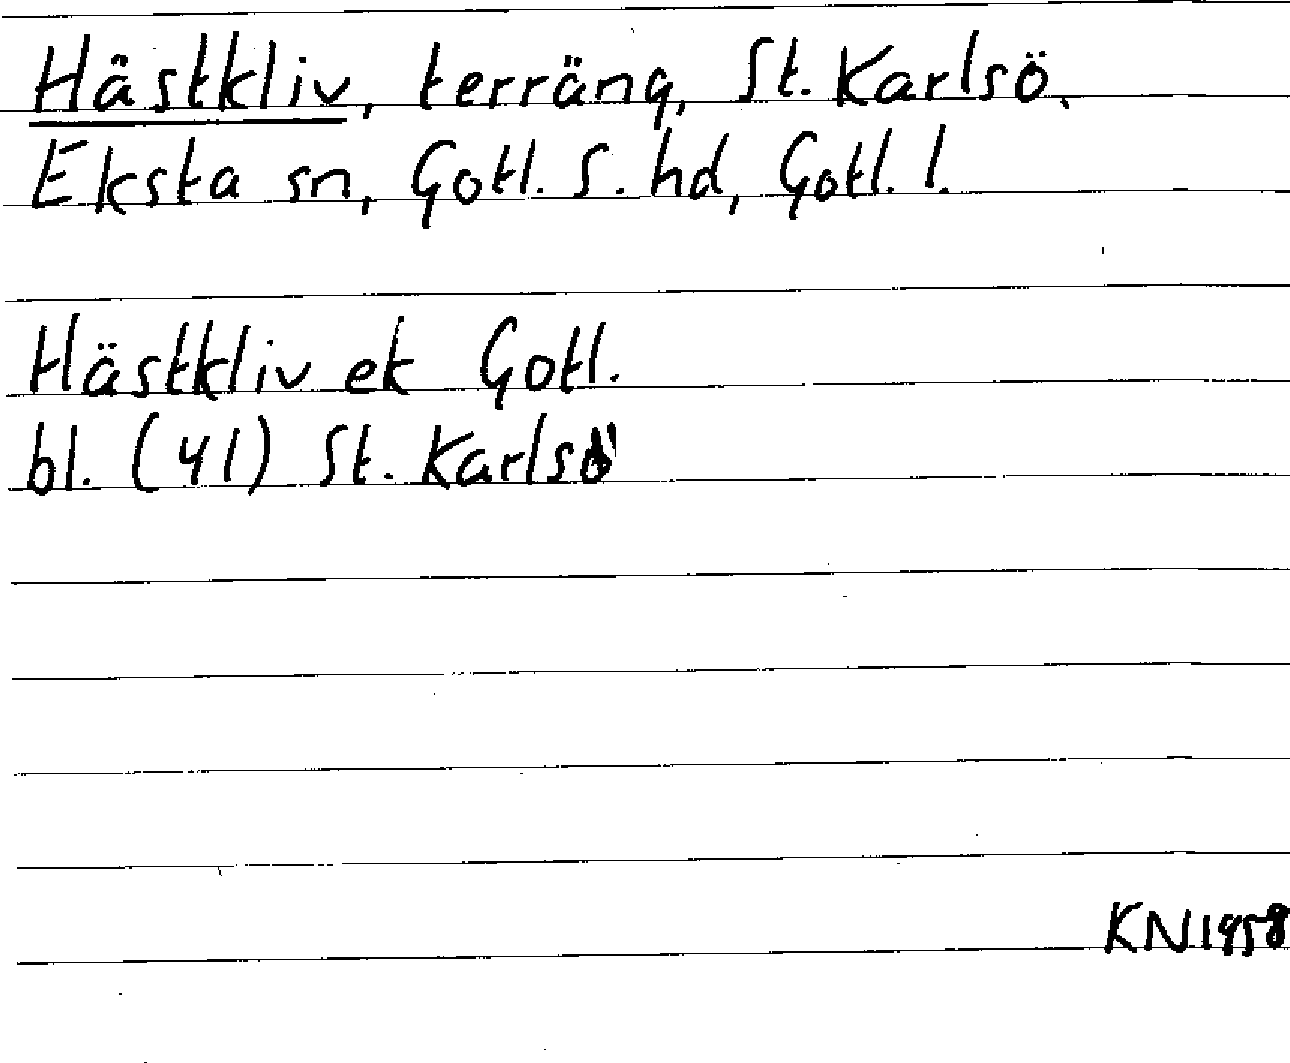 Hästkliv, terräng, St. Karlsö,
Eksta sn, Gotl. S. hd, Gotl. l.
Hästkliv ek Gotl.
bl. (41) St. Karlsö
KN1958